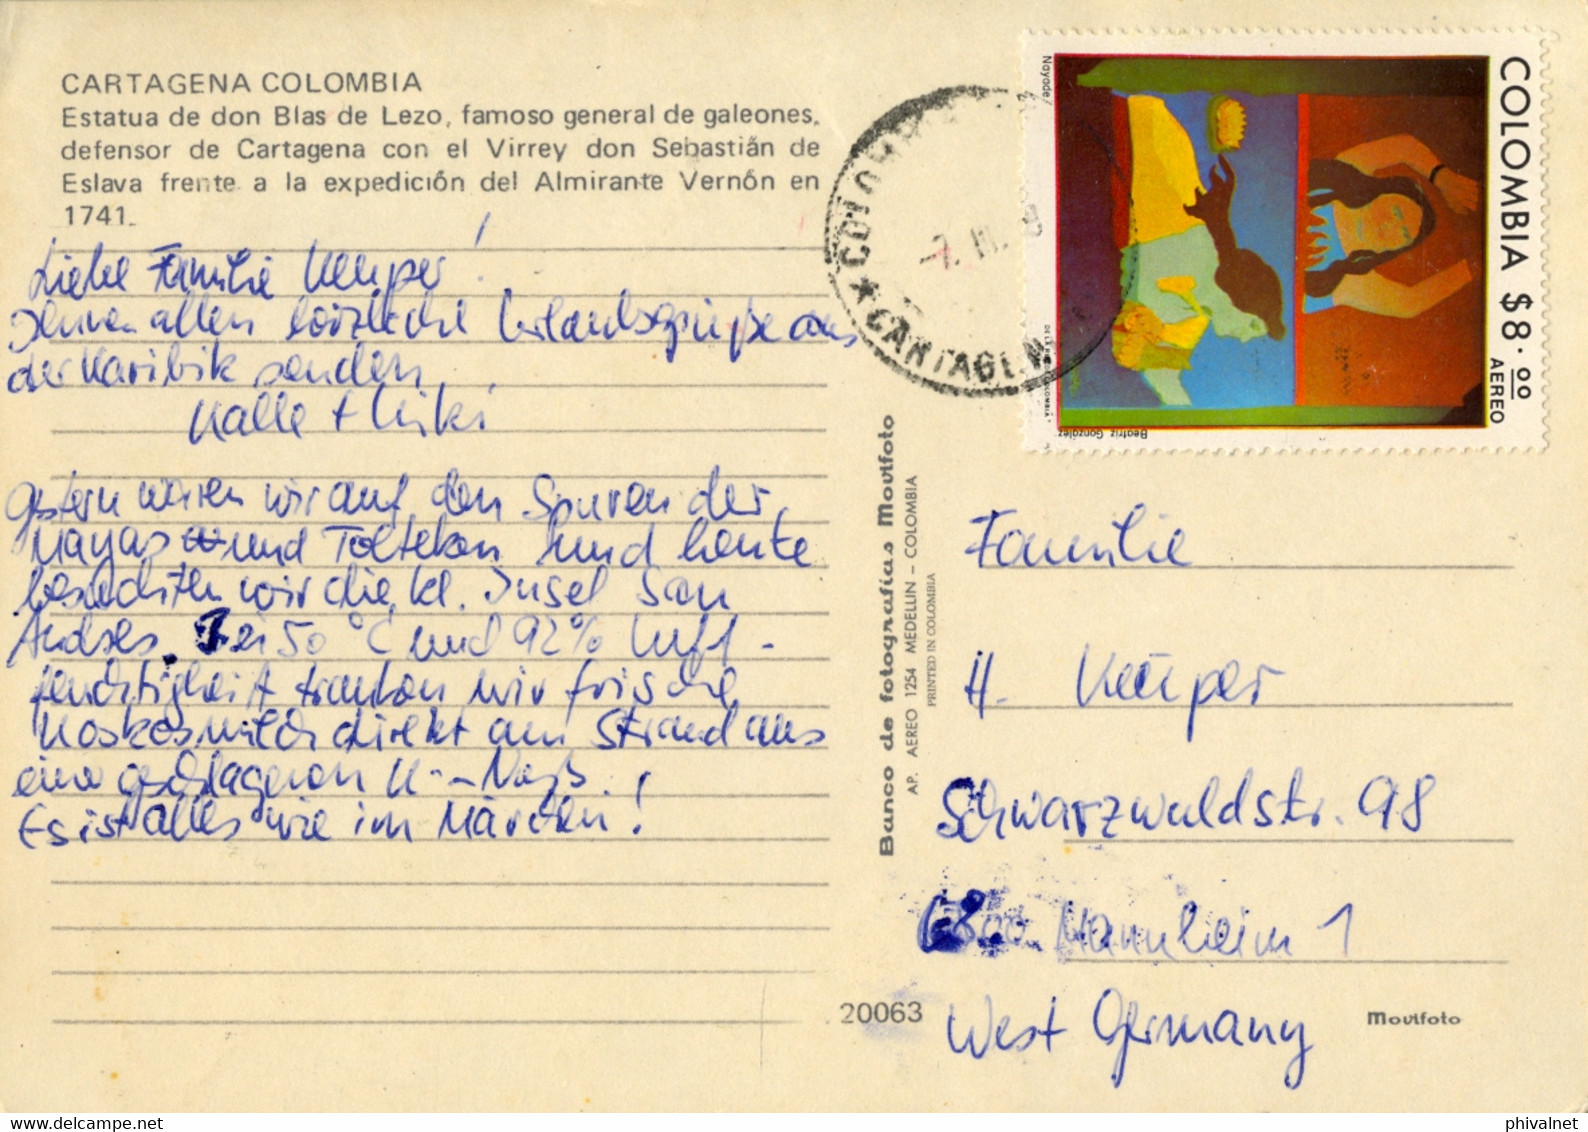 CARTAGENA COLOMBIA
Estatua de don Blas de Lezo, famoso general de galeones,
defensor de Cartagena con el Virrey don Sebastián de
Eslava frente a la expedición del Almirante Vernón en
1741.
Liebe Familie Kemper!
Ihnen allen herzliche Urlaubsgrüße aus
der Karibik senden
Kalle +
Gestern waren wir auf den Spuren der
Mayas und Tolteken und heute
besuchten wir die kl. Insel San
Andres. Bei 50 °C und 92% Luft-
feuchtigkeit tranken wir frische
Kokosmilch direkt am Strand aus
einer geschlagenen K.-Nuß.
Es ist alles wie im Märchen!
Banco de fotografías Movifoto
AP. AEREO 1254 MEDELLIN - COLOMBIA
PRINTED IN COLOMBIA
COLOMBIA $8.00
AEREO
Nayade/
Beatriz González
COLOMBIA
7. III. 8
★ CARTAGENA
Familie
H. Kemper
Schwarzwaldstr. 98
6800 Mannheim 1
West Germany
20063
Movifoto
phivalnet